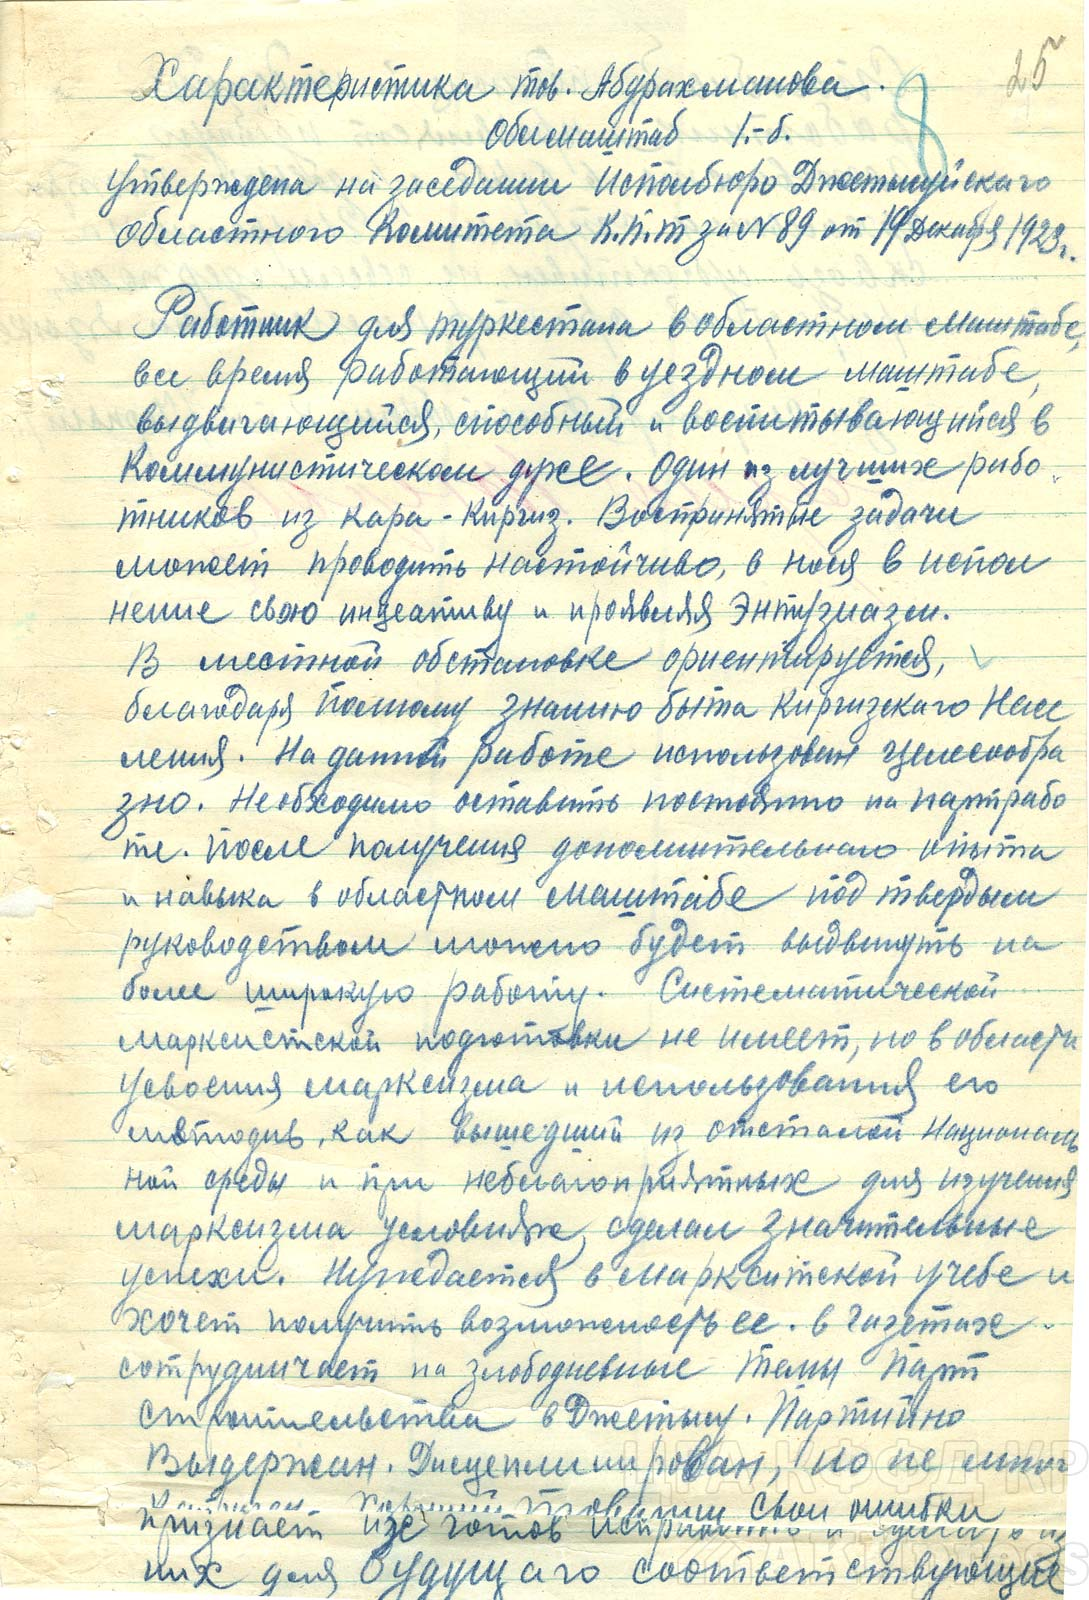 25
8
Характеристика тов. Абдрахманова.
Облмаштаб 1.-б.
Утверждена на заседании Исполбюро Джетысуйскаго
областного Комитета К.П.т за № 89 от 19 Декабря 1923 г.
Работник для туркестана в областном маштабе,
все время работающий в уездном маштабе,
выдвигающийся, способный и воспитывающийся в
Коммунистическом духе. Один из лучших рабо
тников из кара-Киргиз. Воспринятые задачи
может проводить настойчиво, в нося в испол
нение свою инцеативу и проявляя Энтузиазм.
В местной обстановке ориентируется,
благодаря полному знанию быта Киргизскаго Насе
ления. На данной работе использован целесообра
зно. Необходимо оставить постоянно на партрабо
те. После получения дополнительнаго опыта
и навыка в областном маштабе под твердым
руководством можно будет выдвинуть на
более широкую работу. Систематической
марксистской подготовки не имеет, но в области
усвоения марксизма и использования его
методив, как вышедший из отсталой Националь
ной среды и при неблагоприятных для изучения
марксизма условиях, сделал значительные
успехи. Нуждается в Маркситской учебе и
хочет получить возможность ее. в Газетах
сотрудничает на злободневные темы Парт
строительства в Джетысу. Партийно
Выдержан. Дисцеплинирован, но не мног
Хороший товарищ свои ошибки
признает их готов исправить и
них для будущаго соответствующие
ЦГА КФФД КР
AKIpress